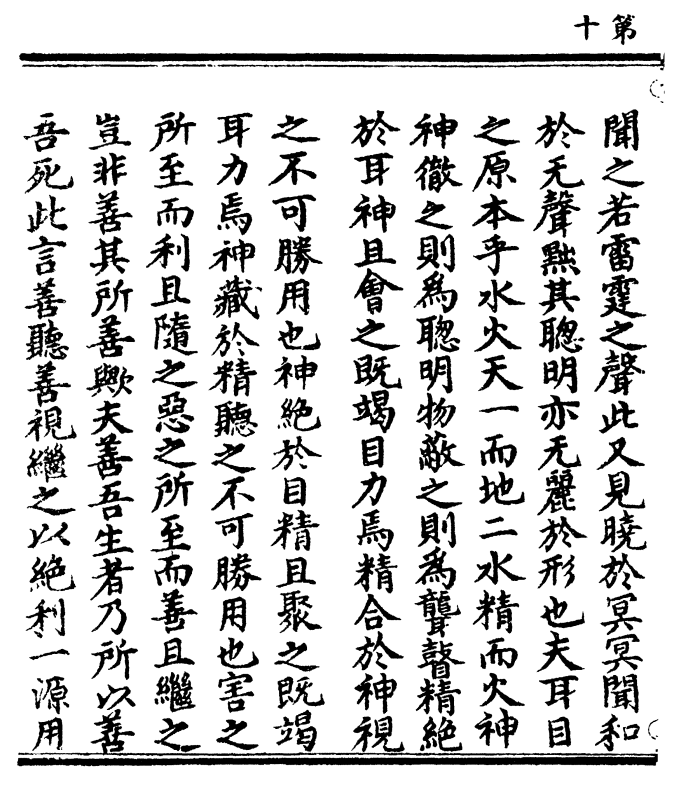 第十
聞之若雷霆之聲此又見曉於冥冥聞和
於无聲黜其聰明亦无麗於形也夫耳目
之原本乎水火天一而地二水精而火神
神徹之則為聰明物蔽之則為聾瞽精絶
於耳神且會之既竭目力焉精合於神視
之不可勝用也神絶於目精且聚之既竭
耳力焉神藏於精聽之不可勝用也害之
所至而利且隨之惡之所至而善且繼之
豈非善其所善歟夫善吾生者乃所以善
吾死此言善聽善視繼之以絶利一源用